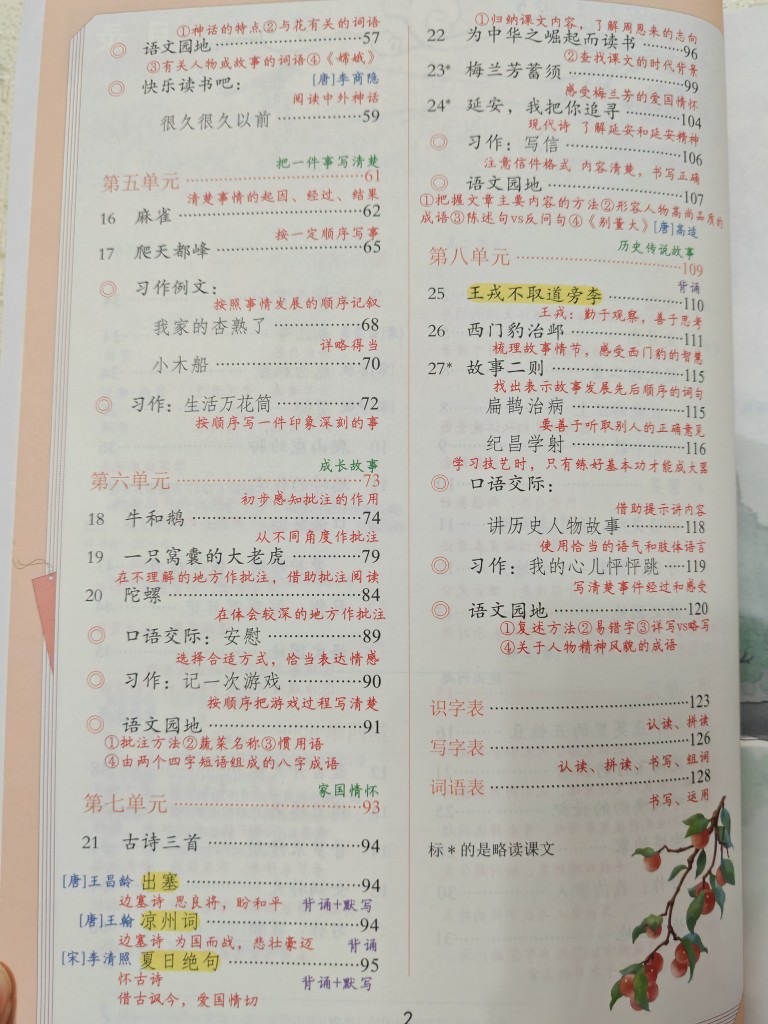 ①神话的特点②与花有关的词语
◎ 语文园地 ……………… 57
③有关人物或故事的词语④《嫦娥》
[唐]李商隐
◎ 快乐读书吧：
阅读中外神话
很久很久以前 ……………… 59
把一件事写清楚
第五单元 ……………… 61
清楚事情的起因、经过、结果
16 麻雀 ……………… 62
按一定顺序写事
17 爬天都峰 ……………… 65
◎ 习作例文：
按照事情发展的顺序记叙
我家的杏熟了 ……………… 68
详略得当
小木船 ……………… 70
◎ 习作：生活万花筒 ……………… 72
按顺序写一件印象深刻的事
成长故事
第六单元 ……………… 73
初步感知批注的作用
18 牛和鹅 ……………… 74
从不同角度作批注
19 一只窝囊的大老虎 ……………… 79
在不理解的地方作批注，借助批注阅读
20 陀螺 ……………… 84
在体会较深的地方作批注
◎ 口语交际：安慰 ……………… 89
选择合适方式，恰当表达情感
◎ 习作：记一次游戏 ……………… 90
按顺序把游戏过程写清楚
◎ 语文园地 ……………… 91
①批注方法②蔬菜名称③惯用语
④由两个四字短语组成的八字成语
家国情怀
第七单元 ……………… 93
21 古诗三首 ……………… 94
[唐]王昌龄 出塞 ……………… 94
边塞诗 思良将，盼和平 背诵+默写
[唐]王翰 凉州词 ……………… 94
边塞诗 为国而战，悲壮豪迈 背诵
[宋]李清照 夏日绝句 ……………… 95
怀古诗 背诵+默写
借古讽今，爱国情切
①归纳课文内容，了解周恩来的志向
22 为中华之崛起而读书 ……………… 96
②查找课文的时代背景
23* 梅兰芳蓄须 ……………… 99
感受梅兰芳的爱国情怀
24* 延安，我把你追寻 ……………… 104
现代诗 了解延安和延安精神
◎ 习作：写信 ……………… 106
注意信件格式 内容清楚，书写正确
◎ 语文园地 ……………… 107
①把握文章主要内容的方法②形容人物高尚品质的
成语③陈述句vs反问句④《别董大》[唐]高适
历史传说故事
第八单元 ……………… 109
背诵
25 王戎不取道旁李 ……………… 110
王戎：勤于观察，善于思考
26 西门豹治邺 ……………… 111
梳理故事情节，感受西门豹的智慧
27* 故事二则 ……………… 115
找出表示故事发展先后顺序的词句
扁鹊治病 ……………… 115
要善于听取别人的正确意见
纪昌学射 ……………… 116
学习技艺时，只有练好基本功才能成大器
◎ 口语交际：
借助提示讲内容
讲历史人物故事 ……………… 118
使用恰当的语气和肢体语言
◎ 习作：我的心儿怦怦跳 …… 119
写清楚事件经过和感受
◎ 语文园地 ……………… 120
①复述方法②易错字③详写vs略写
④关于人物精神风貌的成语
识字表 ……………… 123
认读、拼读
写字表 ……………… 126
认读、拼读、书写、组词
词语表 ……………… 128
书写、运用
标*的是略读课文
2